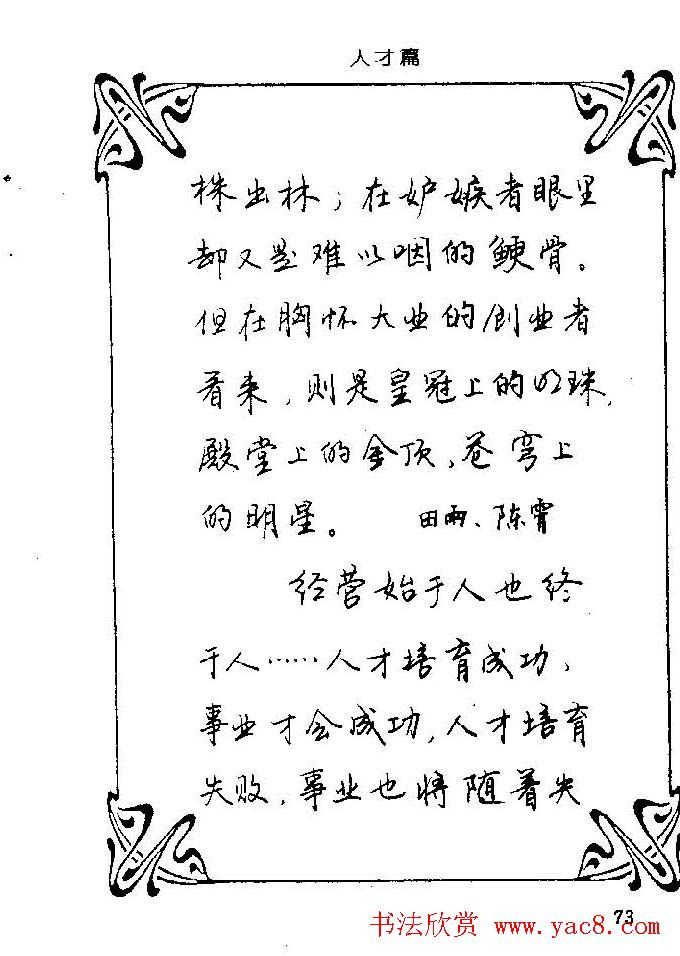 人才篇
株出林；在妒嫉者眼里
却又是难以咽的鲠骨。
但在胸怀大业的创业者
看来，则是皇冠上的明珠，
殿堂上的金顶，苍穹上
的明星。 田雨、陈霄
经营始于人也终
于人……人才培育成功，
事业才会成功，人才培育
失败，事业也将随着失
73
书法欣赏 www.yac8.com